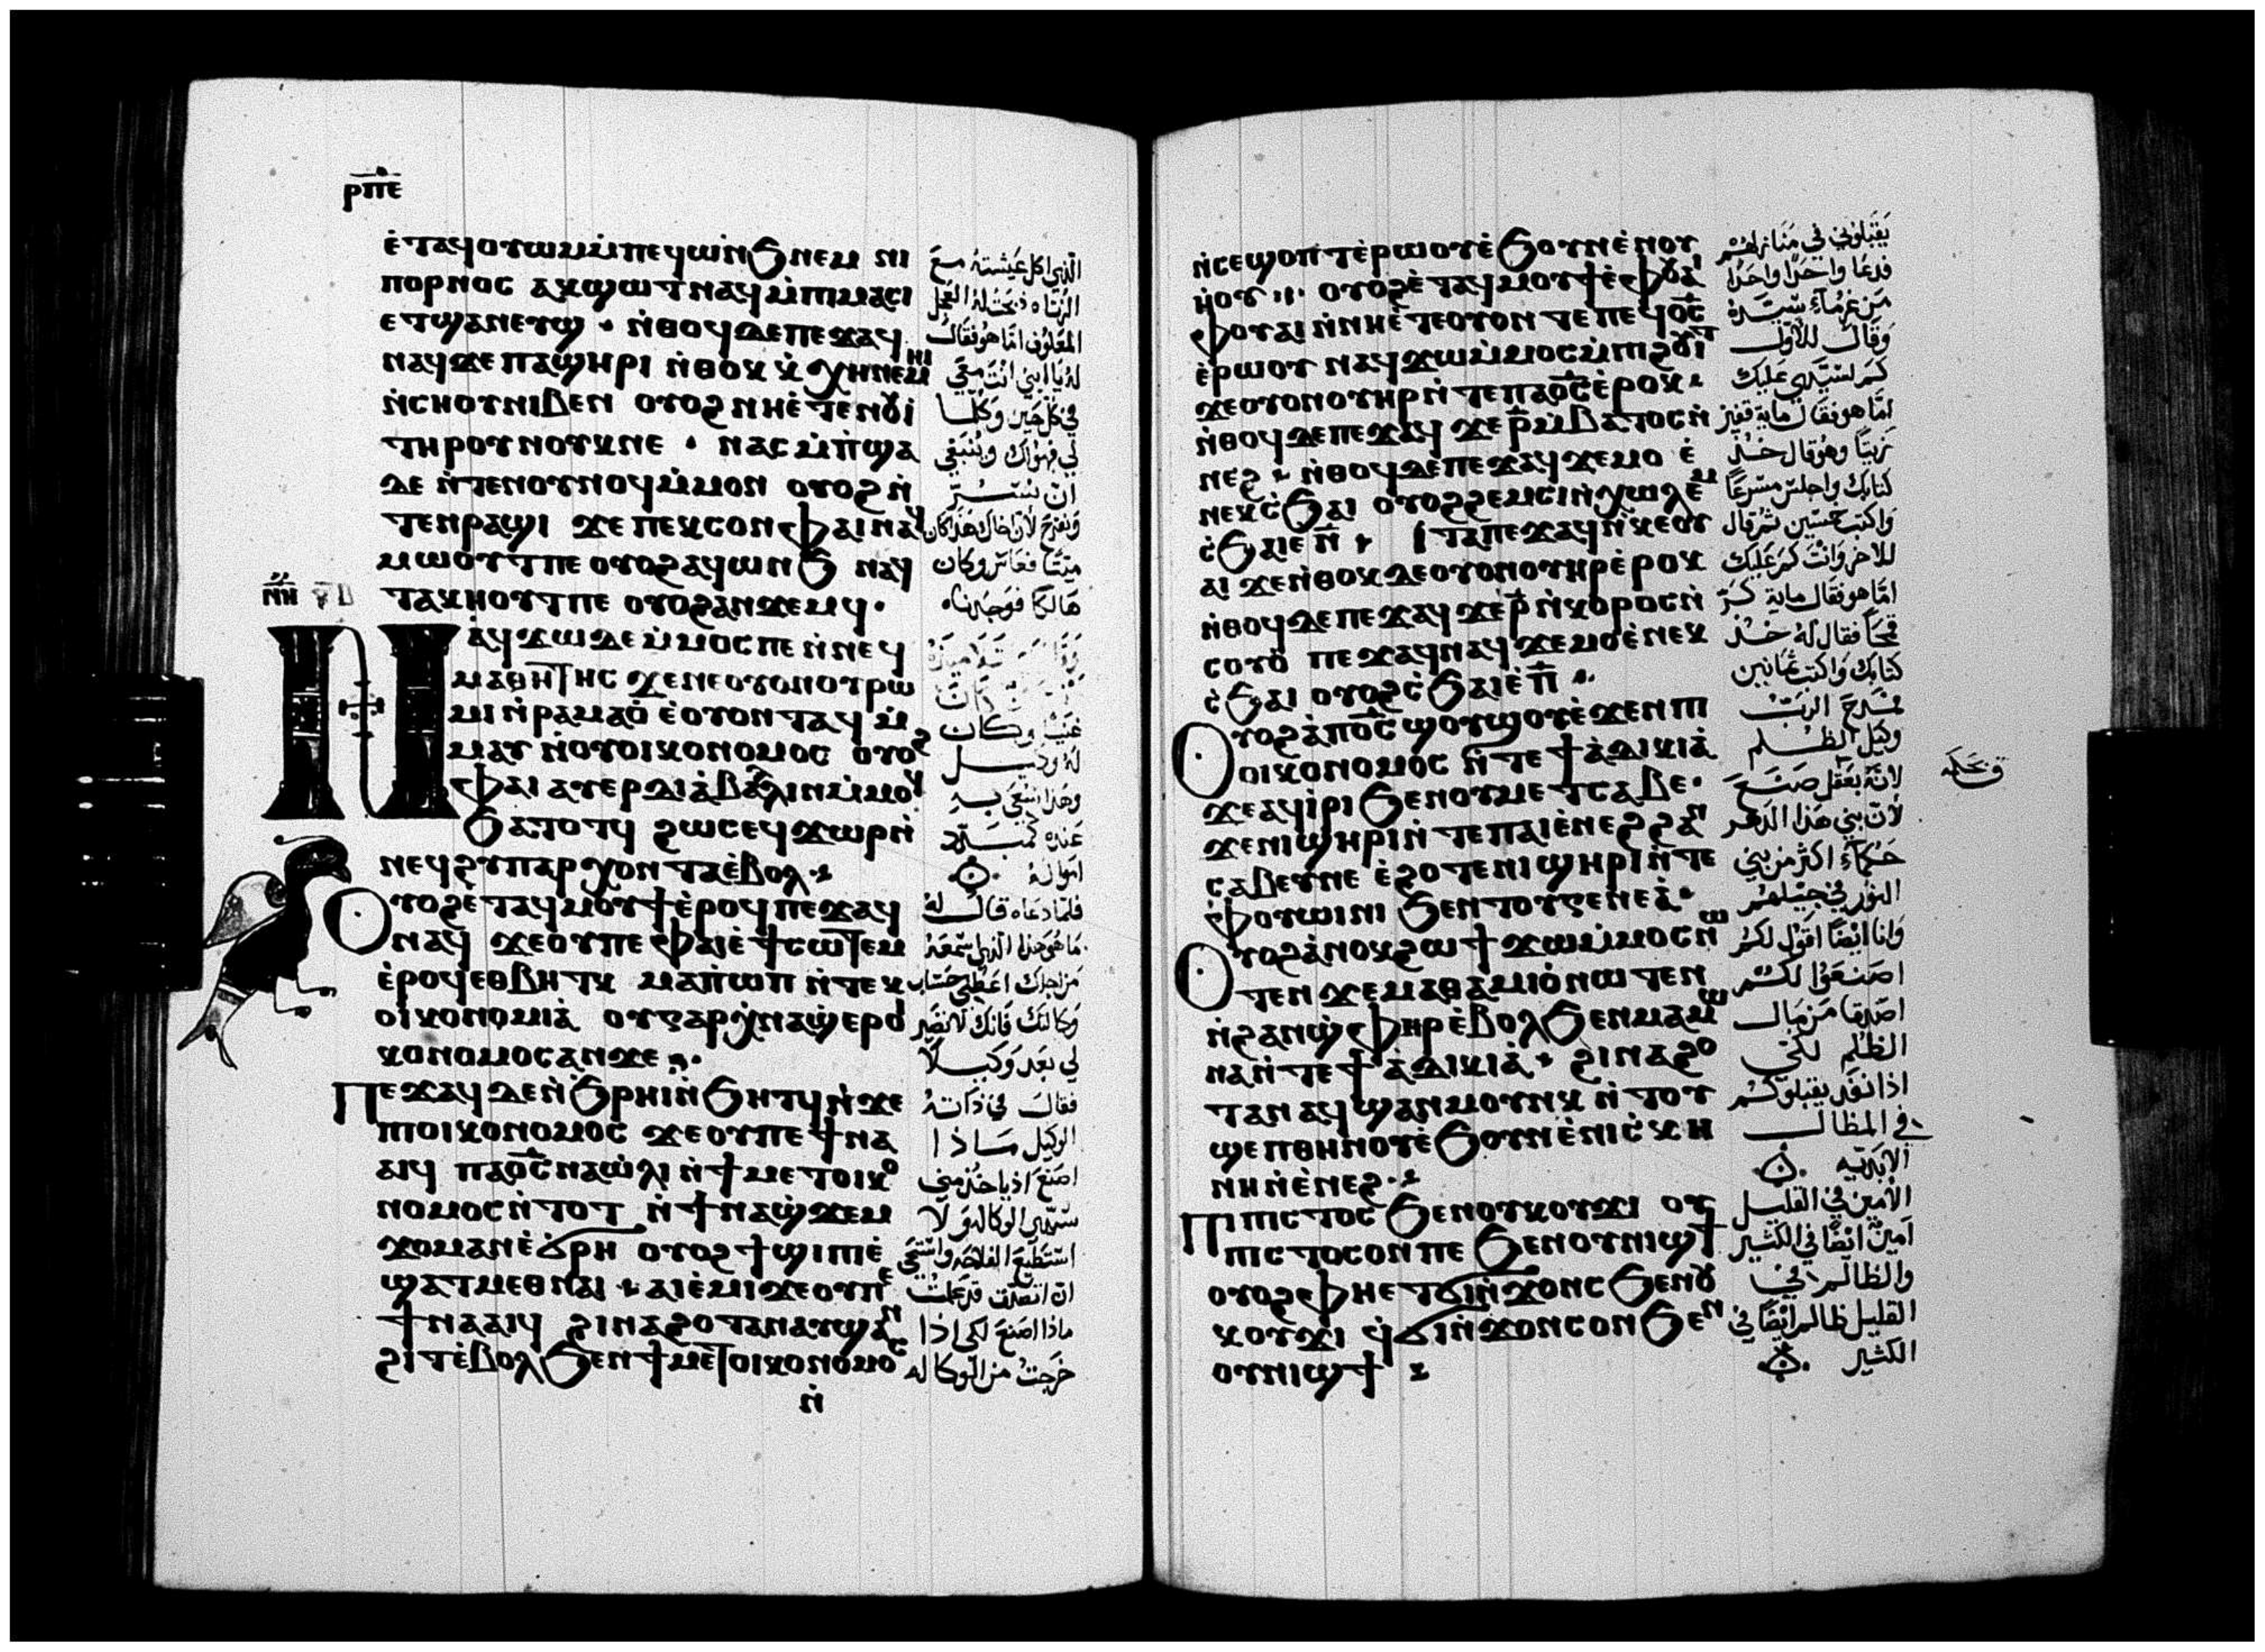 ⲣⲡⲉ
ⲉ̀ⲧⲁϥⲟⲩⲱⲙ ⲙ̀ⲡⲉϥⲱⲛϧ ⲛⲉⲙ ⲛⲓ
ⲡⲟⲣⲛⲟⲥ ⲁⲕϣⲱⲧ ⲛⲁϥ ⲙ̀ⲡⲓⲙⲁⲥⲓ
ⲉⲧϣⲁⲛⲉⲩϣ · ⲛ̀ⲑⲟϥ ⲇⲉ ⲡⲉϫⲁϥ
ⲛⲁϥ ϫⲉ ⲡⲁϣⲏⲣⲓ ⲛ̀ⲑⲟⲕ ⲕ̀ⲭⲏ ⲛⲉⲙⲏⲓ
ⲛ̀ⲥⲏⲟⲩ ⲛⲓⲃⲉⲛ ⲟⲩⲟϩ ⲛⲏⲉ̀ⲧⲉ ⲛⲟⲩⲓ
ⲧⲏⲣⲟⲩ ⲛⲟⲩⲕ ⲛⲉ · ⲛⲁⲥⲙ̀ⲡ̀ϣⲁ
ⲇⲉ ⲛ̀ⲧⲉⲛⲟⲩⲛⲟϥ ⲙ̀ⲙⲟⲛ ⲟⲩⲟϩ ⲛ̀
ⲧⲉⲛⲣⲁϣⲓ ϫⲉ ⲡⲉⲕⲥⲟⲛ ⲫⲁⲓ ⲛⲁϥ
ⲙⲱⲟⲩⲧ ⲡⲉ ⲟⲩⲟϩ ⲁϥⲱⲛϧ ⲛⲁϥ
ⲧⲁⲕⲏⲟⲩⲧ ⲡⲉ ⲟⲩⲟϩ ⲁⲛϫⲉⲙϥ ·
ⲛⲏ
Ⲛⲁϥϫⲱ ⲇⲉ ⲙ̀ⲙⲟⲥ ⲡⲉ ⲛ̀ⲛⲉϥ
ⲙⲁⲑⲏⲧⲏⲥ ϫⲉ ⲛⲉ ⲟⲩⲟⲛ ⲟⲩⲣⲱ
ⲙⲓ ⲛ̀ⲣⲁⲙⲁⲟ̀ ⲉ̀ⲟⲩⲟⲛⲧⲁϥ ⲙ̀
ⲙⲁⲩ ⲛ̀ⲟⲩⲟⲓⲕⲟⲛⲟⲙⲟⲥ ⲟⲩⲟϩ
ⲫⲁⲓ ⲁⲩⲉⲣⲇⲓⲁ̀ⲃⲁⲗⲓⲛ ⲙ̀ⲙⲟϥ
ϧⲁⲧⲟⲧϥ ϩⲱⲥ ⲉϥϫⲱⲣ ⲛ̀
ⲛⲉϥϩⲩⲡⲁⲣⲭⲟⲛⲧⲁ ⲉ̀ⲃⲟⲗ
Ⲟⲩⲟϩ ⲉ̀ⲧⲁϥⲙⲟⲩϯ ⲉ̀ⲣⲟϥ ⲡⲉϫⲁϥ
ⲛⲁϥ ϫⲉ ⲟⲩ ⲡⲉ ⲫⲁⲓ ⲉ̀ϯⲥⲱⲧⲉⲙ
ⲉ̀ⲣⲟϥ ⲉⲑⲃⲏⲧⲕ ⲙⲁ ⲡ̀ⲱⲡ ⲛ̀ⲧⲉⲕ
ⲟⲓⲕⲟⲛⲟⲙⲓⲁ̀ ⲟⲩ ⲅⲁⲣ ⲭ̀ⲛⲁϣ̀ⲉⲣⲟⲓ
ⲕⲟⲛⲟⲙⲟⲥ ⲁⲛ ϫⲉ
Ⲡⲉϫⲁϥ ⲇⲉ ⲛ̀ϧⲣⲏⲓ ⲛ̀ϧⲏⲧϥ ⲛ̀ϫⲉ
ⲡⲓⲟⲓⲕⲟⲛⲟⲙⲟⲥ ϫⲉ ⲟⲩ ⲡⲉ ϯⲛⲁ
ⲁⲓϥ ⲡⲁⲟ̅ⲥ̅ ⲛⲁⲱ̀ⲗⲓ ⲛ̀ϯⲙⲉⲧⲟⲓⲕⲟ
ⲛⲟⲙⲟⲥ ⲛ̀ⲧⲟⲧ ⲛ̀ϯⲛⲁϣ̀ϫⲉⲙ
ϫⲟⲙ ⲁⲛ ⲉ̀ϭⲣⲏ ⲟⲩⲟϩ ϯϣⲓⲡⲓ ⲉ̀
ϣⲁⲧⲙⲉⲑⲛⲁⲓ · ⲁⲓⲉ̀ⲙⲓ ϫⲉ ⲟⲩ ⲡⲉ
ϯⲛⲁⲁⲓϥ ϩⲓⲛⲁ ϩⲟⲧⲁⲛ ⲁⲩϣⲁⲛ
ϩⲓⲧ ⲉ̀ⲃⲟⲗ ϧⲉⲛ ϯⲙⲉⲧⲟⲓⲕⲟⲛⲟⲙⲟⲥ
ⲛ̀
الذي اكل عيشته مع
الزناه ذبحت له العجل
المعلوف اما هو فقال
له يا ابني انت معي
في كل حين وكلما
لي فهو لك وينبغي
ان نسر
ونفرح لان اخاك هذا كان
ميتا فعاش وكان
هالكا فوجدناه
غني وكان
له وكيل
وهذا سعي به
عنده كمبدد
امواله
فلما دعاه قال له
ما هو هذا الذي سمعه
من اجلك اعطي حساب
وكالتك فانك لا تصير
لي بعد وكيلا
فقال في ذاته
الوكيل ماذا
اصنع اذ ياخذ مني
سيدي الوكاله ولا
استطيع الفلاحه واستحي
ان اتصدق قد علمت
ماذا اصنع لكي اذا
خرجت من الوكاله
ⲛ̀ⲥⲉϣⲟⲡⲧ ⲉ̀ⲣⲱⲟⲩ ⲉ̀ϧⲟⲩⲛ ⲉ̀ⲛⲟⲩ
ⲏ̀ⲟⲩ ⲟⲩⲟϩ ⲉ̀ⲧⲁϥⲙⲟⲩϯ ⲉ̀ⲫⲟⲩⲁⲓ
ⲫⲟⲩⲁⲓ ⲛ̀ⲛⲏⲉ̀ⲧⲉ ⲟⲩⲟⲛ ⲧⲉ ⲡⲉϥⲟ̅ⲥ̅
ⲉ̀ⲣⲱⲟⲩ ⲛⲁϥϫⲱ ⲙ̀ⲙⲟⲥ ⲙ̀ⲡⲓϩⲟⲩⲓⲧ
ϫⲉ ⲟⲩⲟⲛ ⲟⲩⲏⲣ ⲛ̀ⲧⲉ ⲡⲁⲟ̅ⲥ̅ ⲉ̀ⲣⲟⲕ
ⲛ̀ⲑⲟϥ ⲇⲉ ⲡⲉϫⲁϥ ϫⲉ ⲣ̅ ⲙ̀ⲃⲁⲧⲟⲥ ⲛ̀
ⲛⲉϩ ⲛ̀ⲑⲟϥ ⲇⲉ ⲡⲉϫⲁϥ ϫⲉ ⲙⲟ ⲉ̀
ⲛⲉⲕⲥ̀ϧⲁⲓ ⲟⲩⲟϩ ϩⲉⲙⲥⲓ ⲛ̀ⲭⲱⲗⲉⲙ
ⲥ̀ϧⲁⲓ ⲉⲛ̅ Ⲓⲧⲁ ⲡⲉϫⲁϥ ⲛ̀ⲕⲉⲟⲩ
ⲁⲓ ϫⲉ ⲛ̀ⲑⲟⲕ ⲇⲉ ⲟⲩⲟⲛ ⲟⲩⲏⲣ ⲉ̀ⲣⲟⲕ
ⲛ̀ⲑⲟϥ ⲇⲉ ⲡⲉϫⲁϥ ϫⲉ ⲣ̅ ⲛ̀ⲕⲟⲣⲟⲥ ⲛ̀
ⲥⲟⲩⲟ̀ ⲡⲉϫⲁϥ ⲛⲁϥ ϫⲉ ⲙⲟ ⲉ̀ⲛⲉⲕ
ⲥ̀ϧⲁⲓ ⲟⲩⲟϩ ⲥ̀ϧⲁⲓ ⲉ̀ⲡ̅
Ⲟⲩⲟϩ ⲁ̀ ⲡⲟ̅ⲥ̅ ϣⲟⲩϣⲟⲩ ⲉ̀ϫⲉⲛ ⲡⲓ
ⲟⲓⲕⲟⲛⲟⲙⲟⲥ ⲛ̀ⲧⲉ ϯⲁ̀ⲇⲓⲕⲓⲁ̀
ϫⲉ ⲁϥⲓ̀ⲣⲓ ϧⲉⲛ ⲟⲩⲙⲉⲧⲥⲁⲃⲉ ·
ϫⲉ ⲛⲓϣⲏⲣⲓ ⲛ̀ⲧⲉ ⲡⲁⲓⲉ̀ⲛⲉϩ ϩⲁⲛ
ⲥⲁⲃⲉⲩ ⲛⲉ ⲉ̀ϩⲟⲧⲉ ⲛⲓϣⲏⲣⲓ ⲛ̀ⲧⲉ
ⲫⲟⲩⲱⲓⲛⲓ ϧⲉⲛ ⲧⲟⲩⲅⲉⲛⲉⲁ̀ ·
Ⲟⲩⲟϩ ⲁ̀ⲛⲟⲕ ϩⲱ ϯϫⲱ ⲙ̀ⲙⲟⲥ ⲛⲱ
ⲧⲉⲛ ϫⲉ ⲙⲁⲑⲁⲙⲓⲟ̀ ⲛⲱⲧⲉⲛ
ⲛ̀ϩⲁⲛϣ̀ⲫⲏⲣ ⲉ̀ⲃⲟⲗ ϧⲉⲛ ⲙⲁⲙⲱ
ⲛⲁ ⲛ̀ⲧⲉ ϯⲁ̀ⲇⲓⲕⲓⲁ̀ ϩⲓⲛⲁ ϩⲟ
ⲧⲁⲛ ⲁϥϣⲁⲛⲙⲟⲩⲛⲕ ⲛ̀ⲧⲟⲩ
ϣⲉⲡ ⲑⲏⲛⲟⲩ ⲉ̀ϧⲟⲩⲛ ⲉ̀ⲛⲓⲥ̀ⲕⲏ
ⲛⲏ ⲛ̀ⲉ̀ⲛⲉϩ
Ⲡⲓⲡⲓⲥⲧⲟⲥ ϧⲉⲛ ⲟⲩⲕⲟⲩϫⲓ ⲟⲩ
ⲡⲓⲥⲧⲟⲥ ⲟⲛ ⲡⲉ ϧⲉⲛ ⲟⲩⲛⲓϣϯ
ⲟⲩⲟϩ ⲫⲏⲉⲧϭⲓ ⲛ̀ϫⲟⲛⲥ ϧⲉⲛ ⲟⲩ
ⲕⲟⲩϫⲓ ϥ̀ϭⲓ ⲛ̀ϫⲟⲛⲥ ⲟⲛ ϧⲉⲛ
ⲟⲩⲛⲓϣϯ
يقبلوني في منازلهم
فدعا واحدا واحدا
من غرماء سيده
وقال للاول
كم لسيدي عليك
اما هو فقال مايه قفيز
زيتا وهو قال خذ
كتابك واجلس مسرعا
واكتب خمسين ثم قال
للاخر وانت كم عليك
اما هو فقال مايه كر
قمحا فقال له خذ
كتابك واكتب ثمانين
فمدح الرب
وكيل الظلم
لانه بعقل صنع
لان بني هذا الدهر
حكماء اكثر من بني
النور في جيلهم
وانا ايضا اقول لكم
اصنعوا لكم
اصدقا من مال
الظلم لكي
اذا نفد يقبلوكم
في المظال
الابديه
الامين في القليل
امين ايضا في الكثير
والظالم في
القليل ظالم ايضا في
الكثير